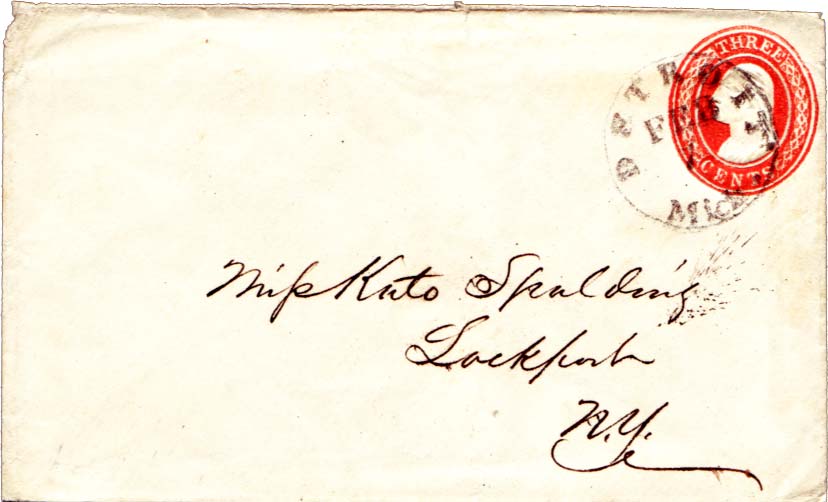 THREE
CENTS
DETROIT
FEB
Mich.
Miſs Kate Spalding
Lockport
N.Y.